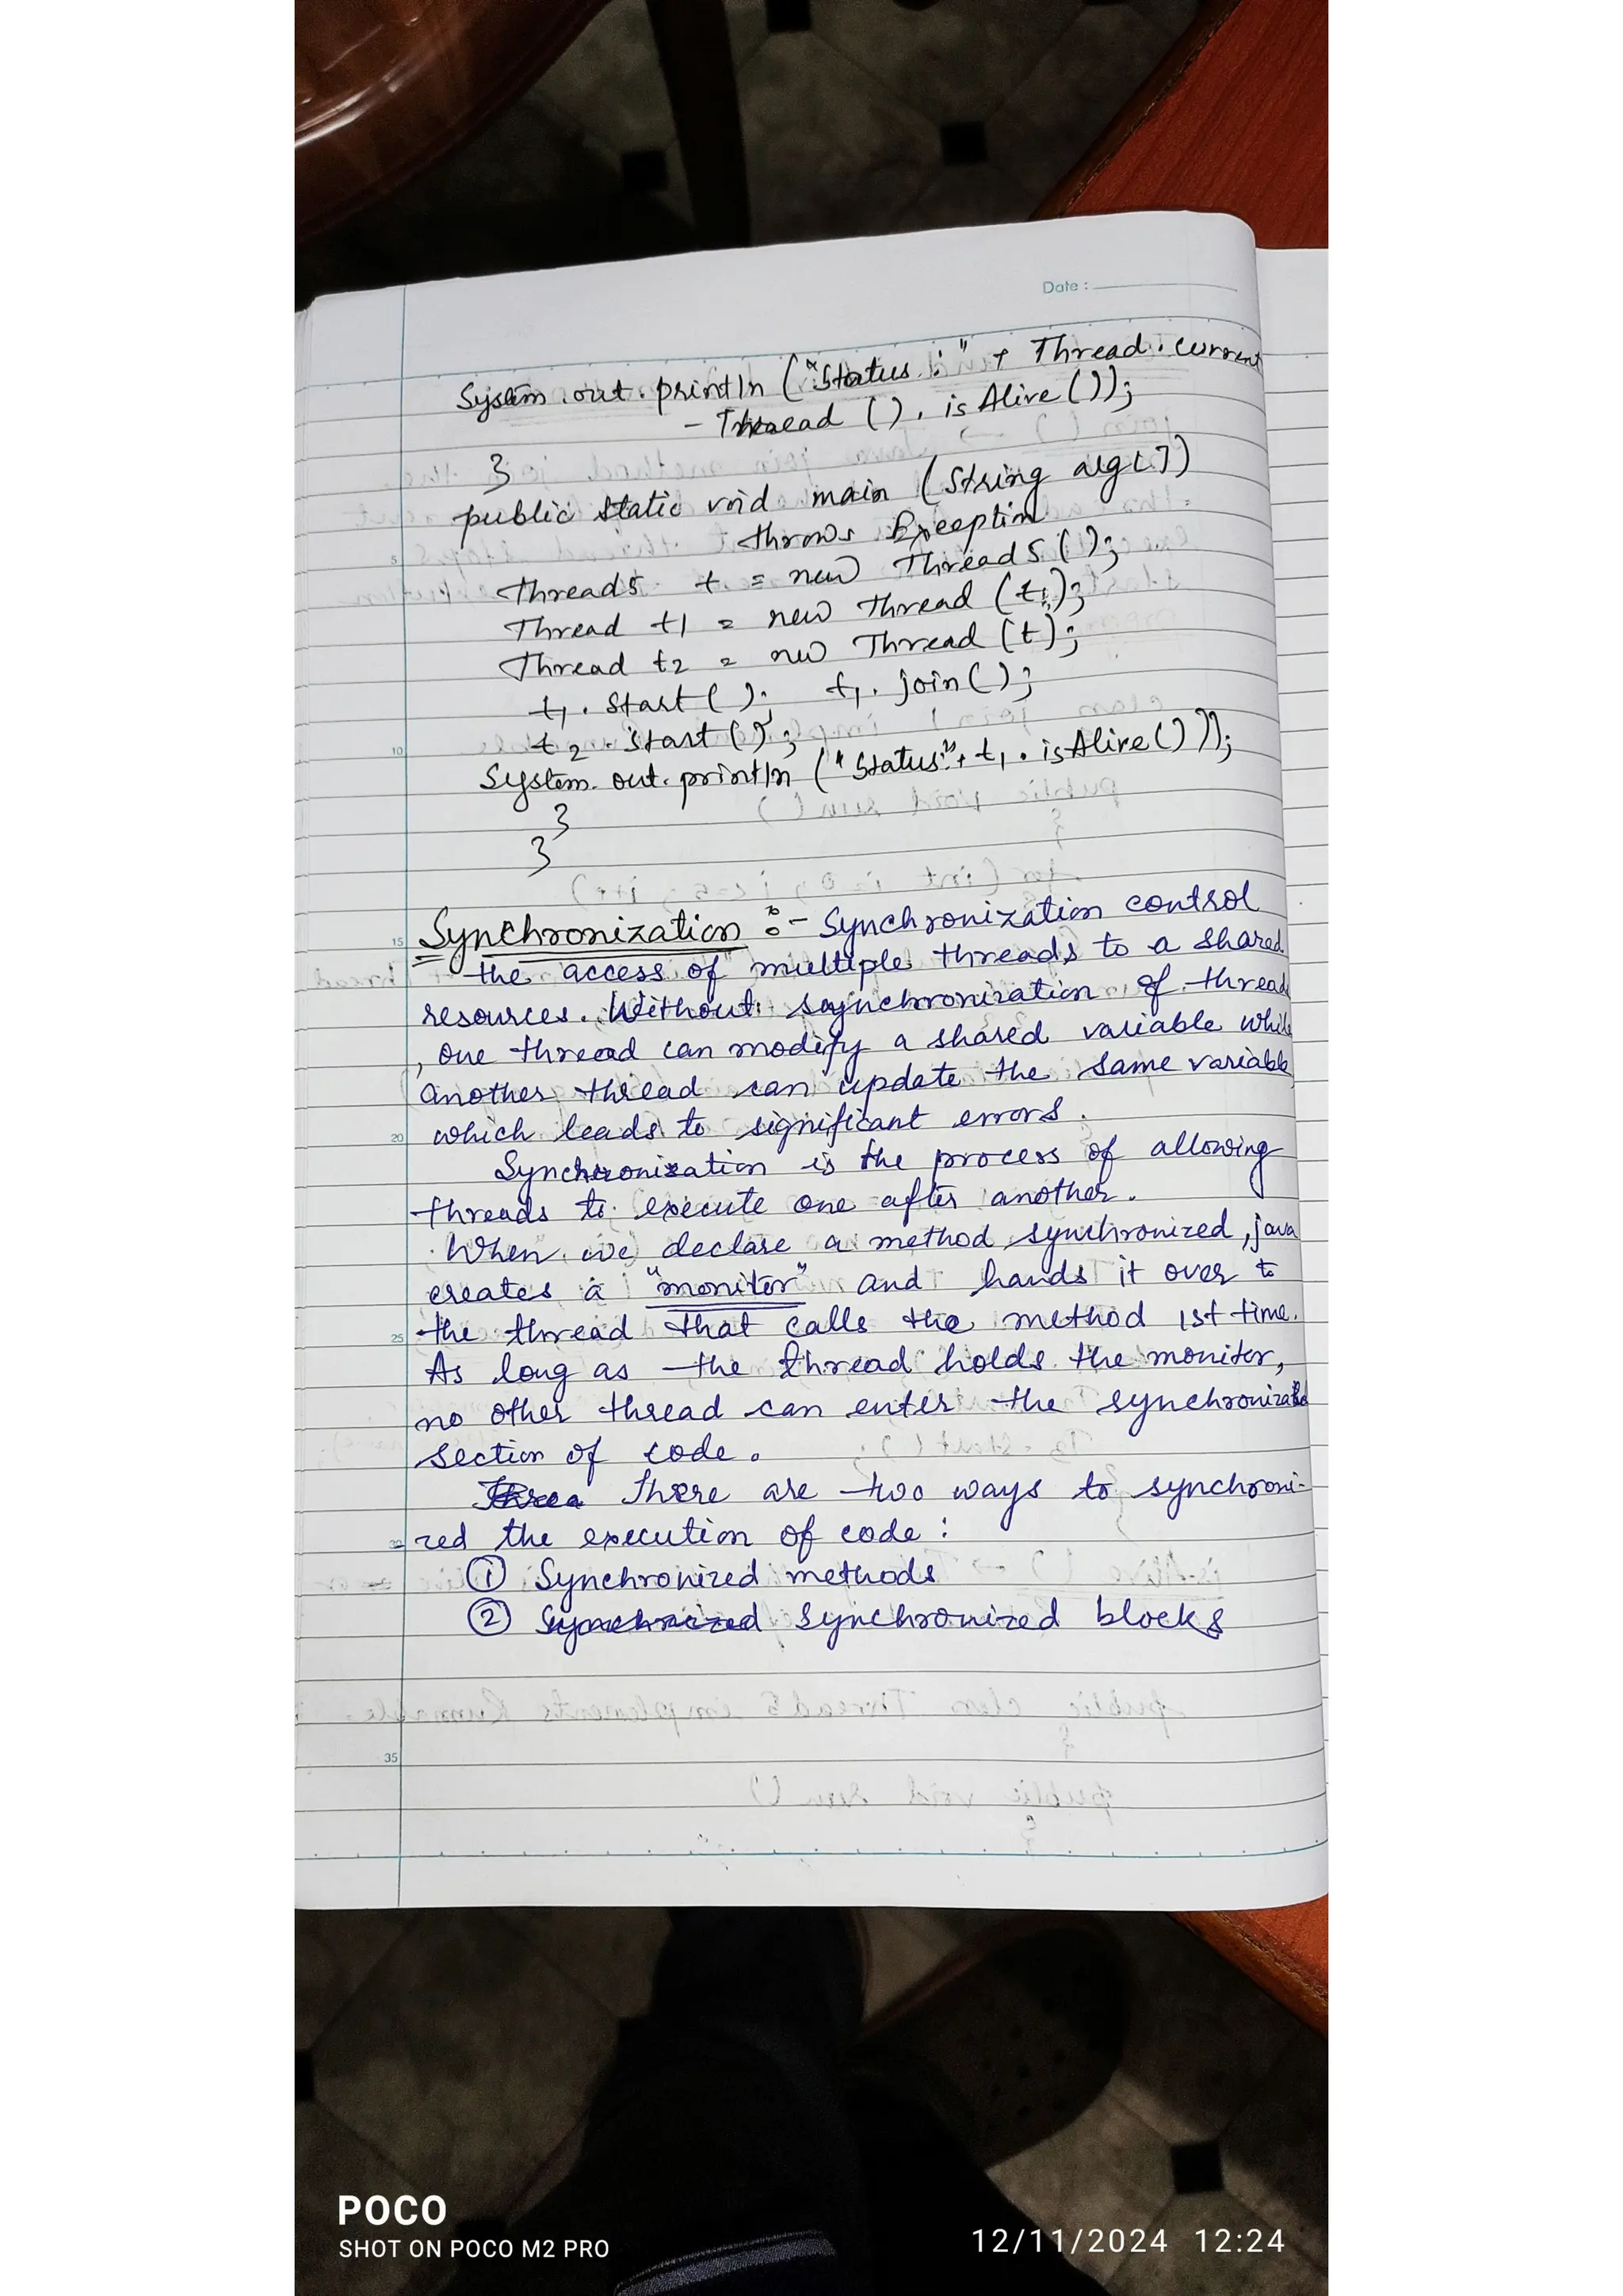 Date :
System.out.println ("Status :" + Thread.current
- Thread (). isAlive ());
}
public static void main (String arg[])
throws Exception
Thread5 t = new Thread5 ();
Thread t1 = new Thread (t);
Thread t2 = new Thread (t);
t1. Start (); t1. join();
t2. start ();
System.out.println ("Status:"+ t1. isAlive ());
}
}
Synchronization :- Synchronization control
the access of multiple threads to a shared
resources. Without synchronization of thread
, one thread can modify a shared variable while
another thread can update the same variable
which leads to significant errors.
Synchronization is the process of allowing
threads to execute one after another.
When we declare a method synchronized, java
creates a "monitor" and hands it over to
the thread that calls the method 1st time.
As long as the thread holds the monitor,
no other thread can enter the synchronized
section of code.
There are two ways to synchroni-
zed the execution of code :
① Synchronized methods
② synchronized blocks
10
15
20
25
30
35
POCO
SHOT ON POCO M2 PRO
12/11/2024 12:24